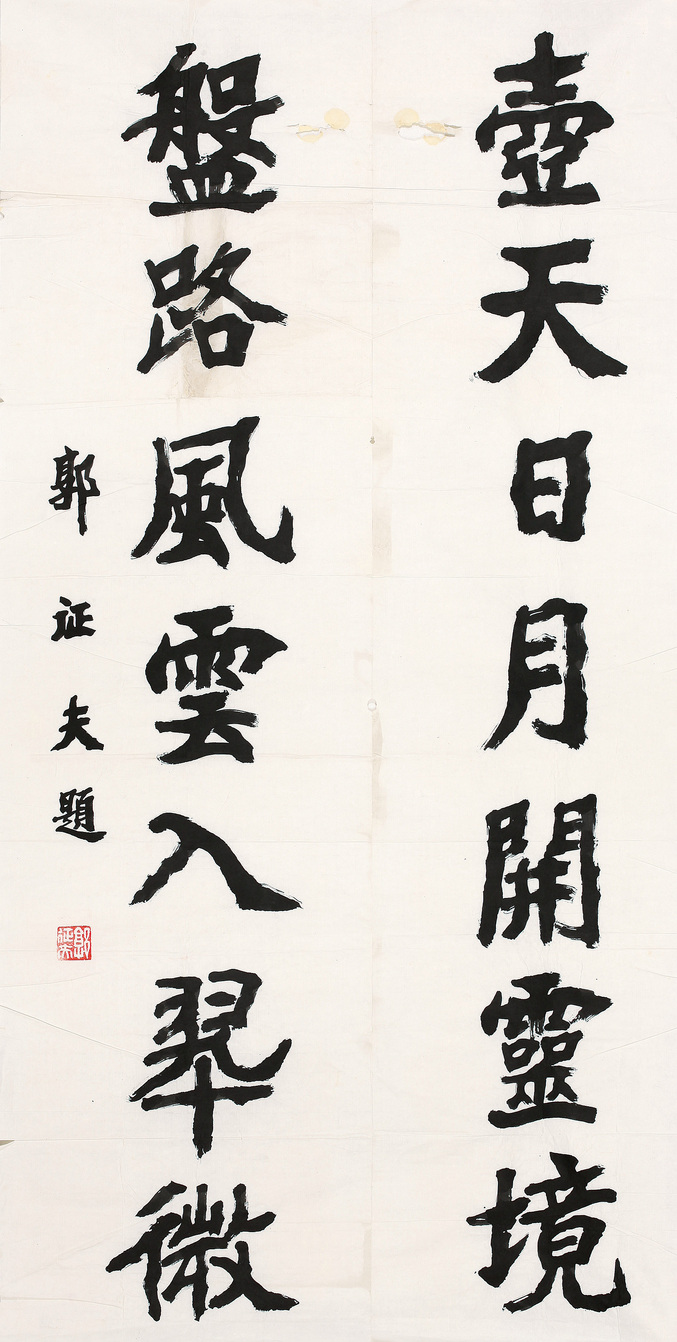 壺天日月開靈境
盤路風雲入翠微
郭証夫題